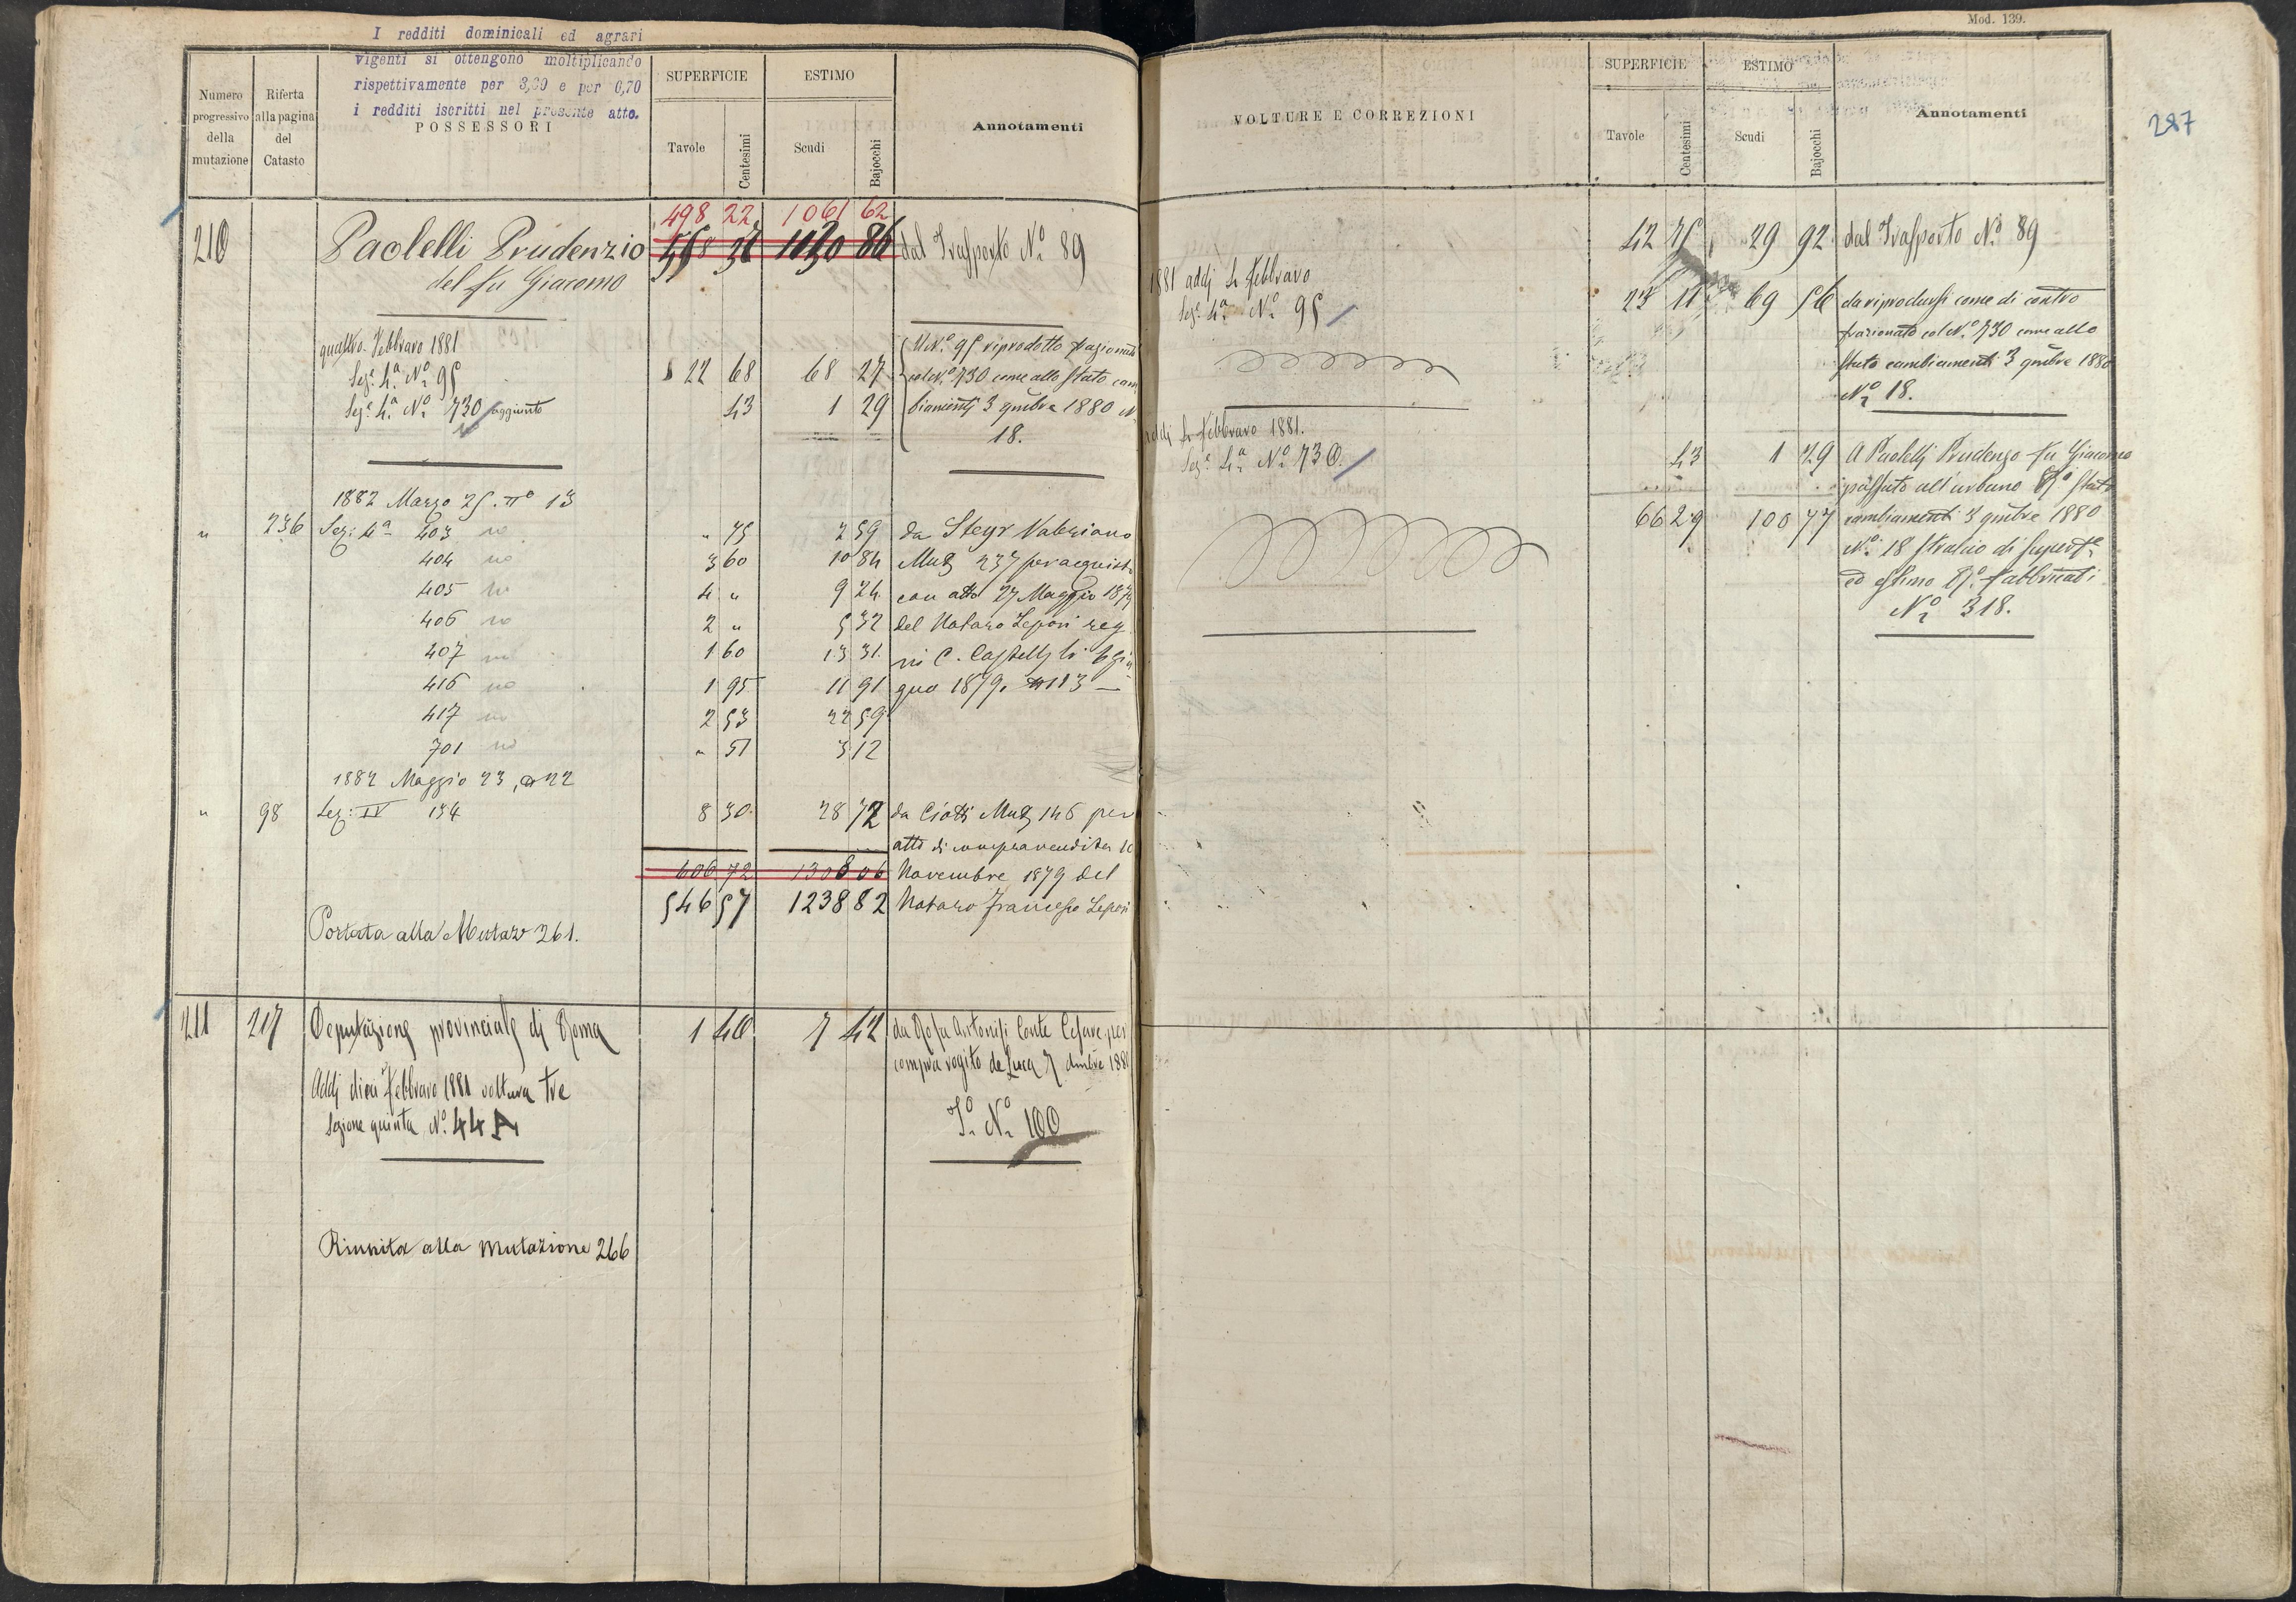 I redditi dominicali ed agrari
vigenti si ottengono moltiplicando
rispettivamente per 3,30 e per 0,70
i redditi iscritti nel presente atto.
Numero progressivo della mutazione
Riferta alla pagina del Catasto
POSSESSORI
SUPERFICIE
Tavole Centesimi
ESTIMO
Scudi Bajocchi
Annotamenti
498 22 1061 62
210 Paolelli Prudenzio 1030 86 dal Trasporto N.º 89
del fu Giacomo
quattro Febbraro 1881
Sez.e 4.a N.º 95 22 68 68 27
Sez.e 4.a N.º 730 aggiunto 43 1 29
Il N.º 95 riprodotto frazionato
col N.º 730 come allo Stato cam
biamenti 3 9mbre 1880 N
18.
1882 Marzo 25. nº 13
" 236 Sez: 4a 403 no " 75 2 59 da Steyr Valeriano
404 no 3 60 10 84 Mut 237 per acquisto
405 no 4 " 9 24 con atto 27 Maggio 1879
406 no 2 " 5 32 del Notaro Lepori reg
407 no 1 60 13 31 in C. Castello li 6 giu
416 no 1 95 11 91 gno 1879. n 113 —
417 no 2 53 22 59
701 no " 51 3 12
1882 Maggio 23, n 22
" 98 Sez: IV 134 8 30 28 72 da Ciotti Mut 146 per
atto di compravendita 10
606 72 1308 06 Novembre 1879 del
546 57 1238 82 Notaro Francesco Lepori
Portata alla Mutaz 261.
211 217 Deputazione provinciale di Roma 1 40 7 42 da Rosa Antonisi Conte Cesare per
compra rogito de Luca 7 dmbre 1880
Addi dieci Febbraro 1881 voltura tre
Sezione quinta N.º 44 A
T.º N.º 100
Riunita alla mutazione 266
Mod. 139.
287
VOLTURE E CORREZIONI
SUPERFICIE
Tavole Centesimi
ESTIMO
Scudi Bajocchi
Annotamenti
42 75 29 92 dal Trasporto N.º 89
1881 addi 4 Febbraro
Sez.e 4.a N.º 95
23 11 69 56 da riprodursi come di contro
frazionato col N.º 730 come allo
Stato cambiamenti 3 9mbre 1880
N.º 18.
addi 4 Febbraro 1881.
Sez.e 4.a N.º 730.
43 1 29 A Paolelli Prudenzo fu Giacomo
passato all'urbano Stato
66 29 100 77 cambiamenti 3 9mbre 1880
N.º 18 stralcio di superf.e
ed estimo fabbricati
N.º 318.